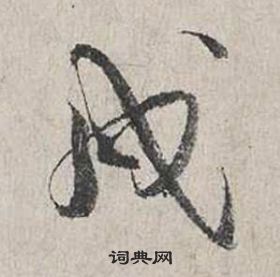 成
词典网